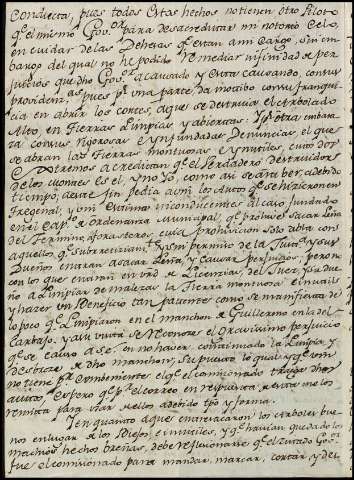 Conducta, pues todos estos hechos no tienen otro Piloto
qe. el mismo Govor. para desacreditar mi notorio Celo
en cuidar de las Dehesas qe. estan a mi Cargo, sin em-
bargo del qual no he podido remediar infinidad de per-
juicios que dho Govor. a causado y esta causando, con sus
providens. pues pr. una parte da motibo con su franqui-
cia en abrir los cortes, a que se destruia el Arbolado
Alto, en tierras Limpias y abiertas: Y pr. otra embara-
za con sus rigorosas e ynfundadas Denuncias, el que
se abran las tierras montuosas e ynutiles, cuios dos
extremos acreditan qe. el verdadero destruidor
de los montes es el, y no Yo, como asi se ara ber, a debido
tiempo, a este fin pedia a mi los Autos qe. se hizieron en
Fregenal, y son inconducentes al caso fundado
en el Cap. de ordenanza Municipal, qe. prohive sacar Leña
del termino, a forasteros, cuia prohivicion solo abla con
aquellos qe. subrecticiamte. y sin permiso de la Justa. y sus
Dueños entran a sacar Leña, y causar perjuicios; pero no
con los que entran en vrd. de Licencias del Juez, y su due-
ño a Limpiar de maleza la tierra montuosa e inutil
y hazer un Beneficio tan patente como se manifiesta de
lo poco qe. Limpiaron en el manchon de Guillermo en la del
Carbajo, y aun podra se reconoze el Grabisimo perjuicio
qe. se causo a Se. en no haver continuado la Limpia, y
desbroze de dho manchon; Supuesto lo qual y qe. Vm.
no tiene pr. combeniente el qe. el comisionado traiga dhos
autos, espero qe. pr. el correo en respuesta de esta me los
remita para usar de ellos a debido tpo. y forma.
Y en quanto a que entresacaron los arboles bue-
nos en lugar de los Biejos e inutiles, y qe. havian quedado los
machios hechos breñas, debe reflexionarse qe. el citado Govor.
fue el comisionado para mandar, marcar, cortar, y de-